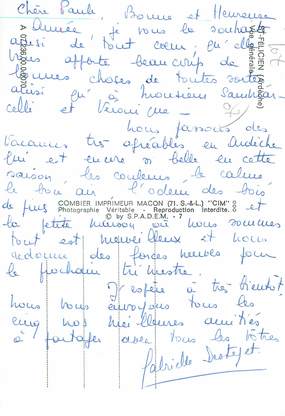 Chère Paule, Bonne et Heureuse
Année, je vous la souhaite
ainsi de tout cœur, qu'elle
vous apporte beaucoup de
bonnes choses de toutes sortes
ainsi qu'à Monsieur
celli et Véronique -
Nous passons des
vacances très agréables en Ardèche
qui est encore si belle en cette
saison, les couleurs, le calme
le bon air, l'odeur des bois
de pins et
la petite maison où nous sommes
tout est merveilleux et nous
redonne des forces neuves pour
le prochain trimestre.
J'espère à très bientôt
nous vous envoyons tous les
cinq nos meilleures amitiés
à partager avec tous les vôtres
Gabrielle
ST-FELICIEN (Ardèche)
Vue générale
COMBIER IMPRIMEUR MACON (71. S.-&-L.) "CIM"
Photographie Véritable - Reproduction Interdite.
© by S.P.A.D.E.M. - 7